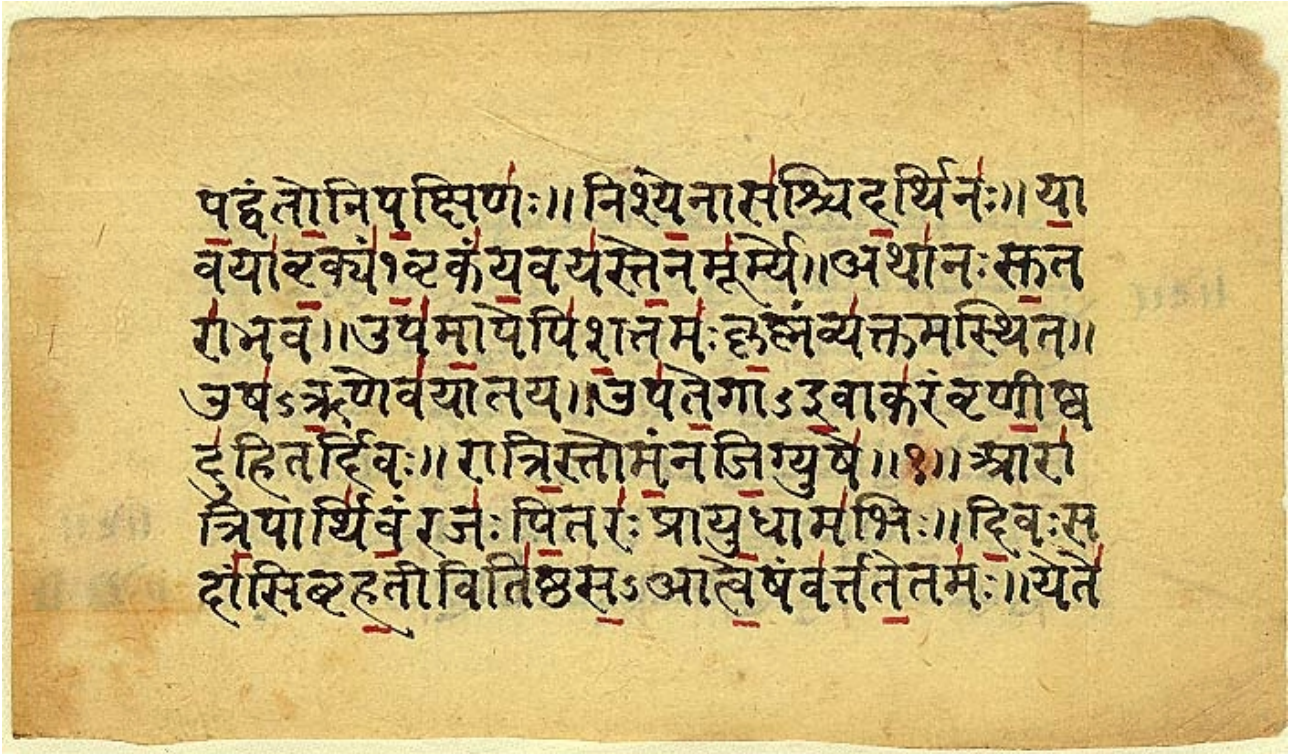 पद्वंतोनिपक्षिणः॥निश्येनासश्चिदर्थिनः॥या
वयावृक्यं१वृकंयवयस्तेनमूर्म्ये॥अथानःसुत
राभव॥उपमापेपिशत्तमःकृष्णंव्यक्तमस्थित॥
उषऽऋणेवयातय॥उपतेगाऽइवाकरंवृणीष्व
दुहितर्दिवः॥रात्रिस्तोमंनजिग्युषे॥१॥आरा
त्रिपार्थिवंरजःपितरःप्रायुधामभिः॥दिवःस
दांसिबृहतीवितिष्ठसऽआत्वेषंवर्त्ततेतमः॥येते